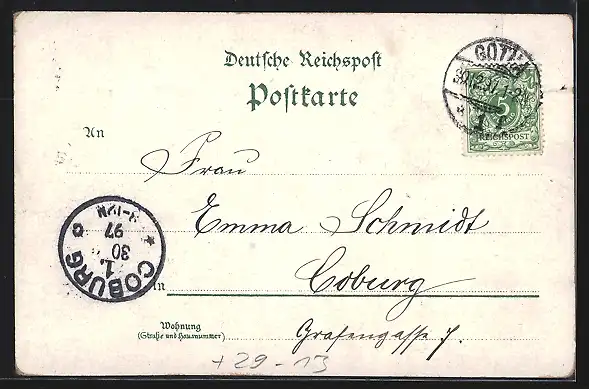 Deutsche Reichspost
Postkarte
GOTHA
30.12.97.1-2N.
5
REICHSPOST
An
Frau
Emma Schmidt
in Coburg
COBURG
1.
30
97
Wohnung
(Straße und Hausnummer)
Grafengasse 7.
+29-13